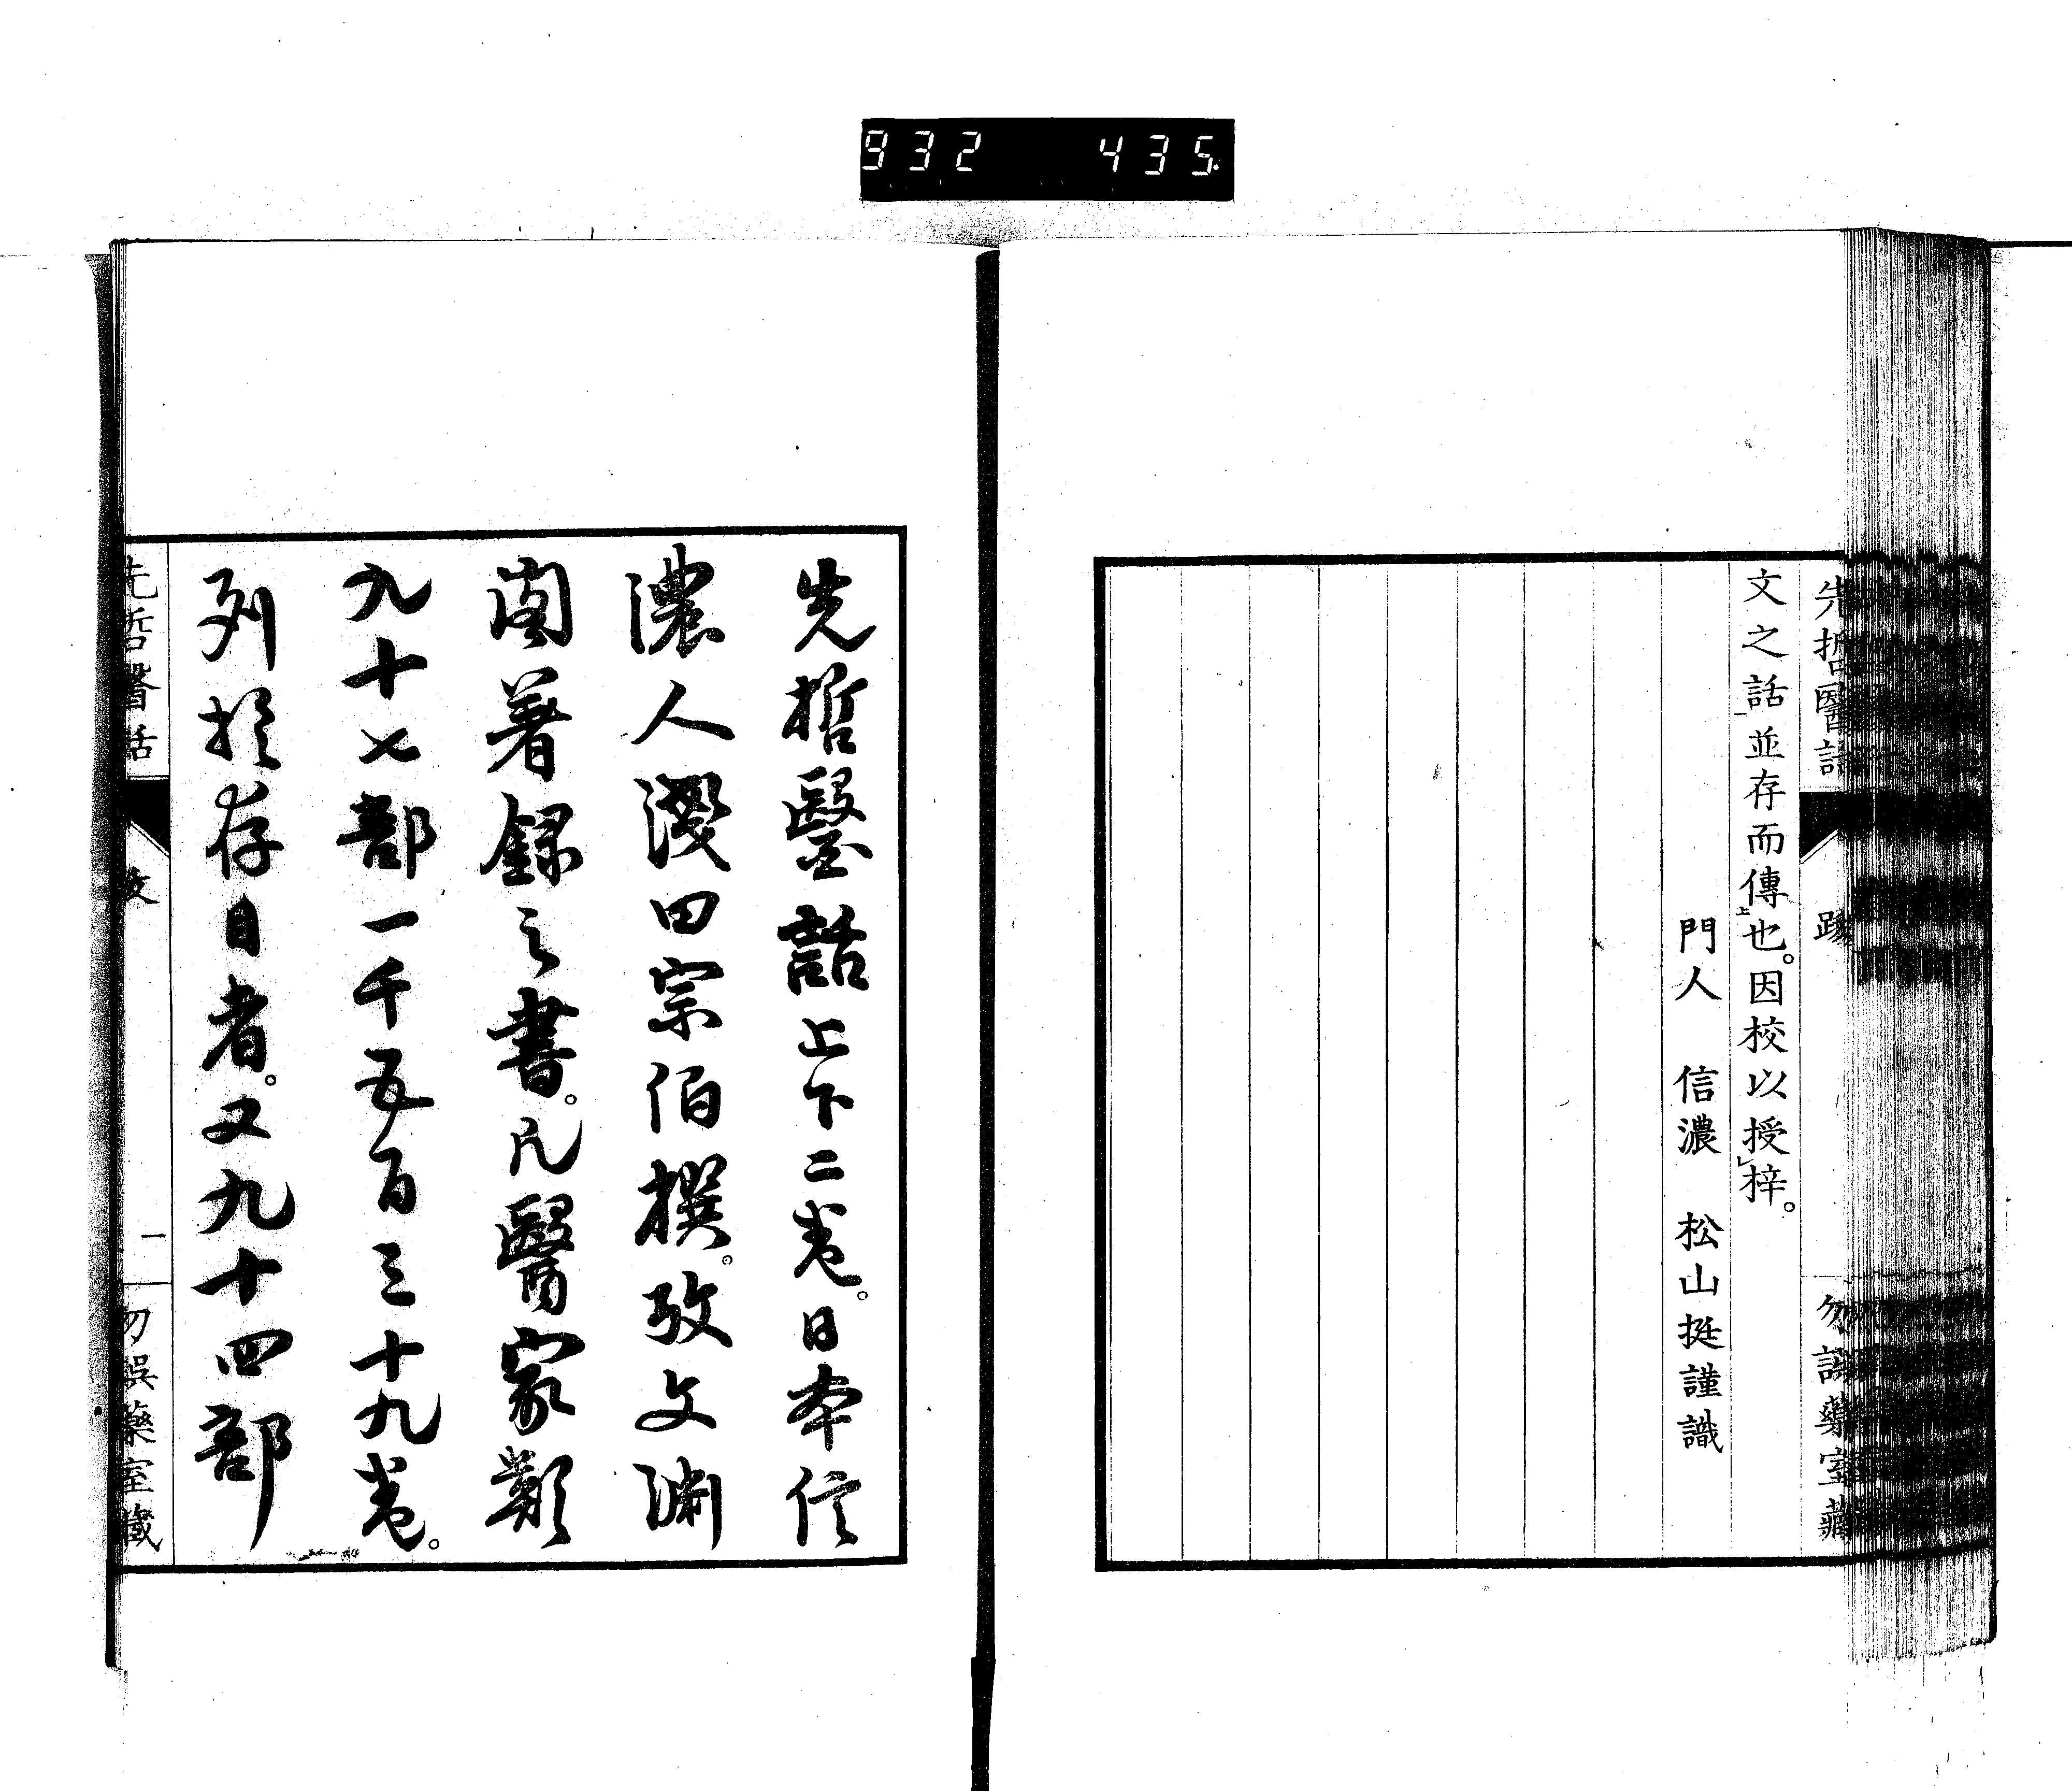 932 435
先哲醫話
跋
勿誤藥室藏
文之話並存而傳也。因校以授梓。
門人 信濃 松山挺謹識
先哲毉話上下二卷。日本信
濃人淺田宗伯撰。攷文淵
閣著録之書。凡醫家類
九十七部一千五百三十九卷。
列於存目者。又九十四部
先哲醫話
跋
一
勿誤藥室藏